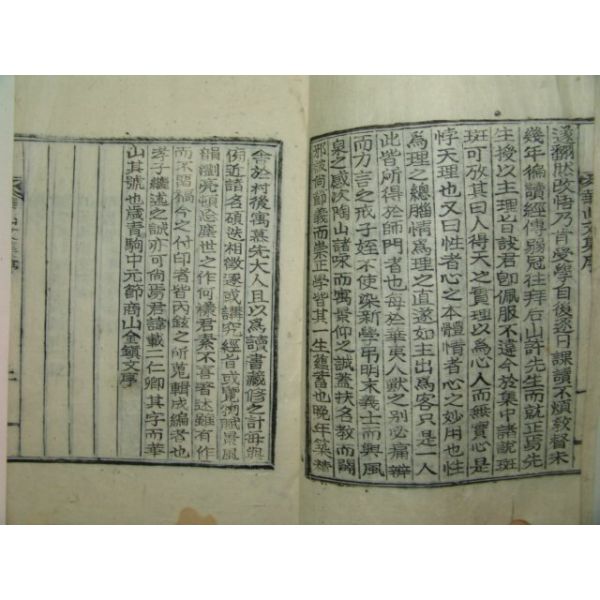 渙翻然改悟乃肯受學自後逐日課讀不煩敎督未
幾年徧讀經傳縣冠往拜后山許先生而就正焉先
生授以主理旨訣君卽佩服不違今於集中諸說班
班可放其曰人得天之實理以爲心人而無實心是
悖天理也又曰性者心之本體情者心之妙用也性
爲理之總腦情爲理之直遂如主出爲客只是一人
此皆所得於師門者也每於華夷人獸之別必痛辨
而方言之戒子姪不使染新學吊明末義士而興風
泉之感次陶山諸咏而寓景仰之誠蓋扶名敎而闢
邪波尙節義而崇正學皆其一生蘊蓄也晩年築精
舍於村後寓慕先大人且以爲讀書藏修之計每與
隣近諸名碩迭相徵逐或講究經旨或覽物賦景風
韻瀏亮頓忘塵世之作何樣君素不喜著述雖有作
而不留稿今之付印者皆內鉉之所蒐輯成編者也
孝子繼述之誠亦可尙焉君諱載二仁卿其字而華
山其號也歲靑駒中元節商山金鎭文序